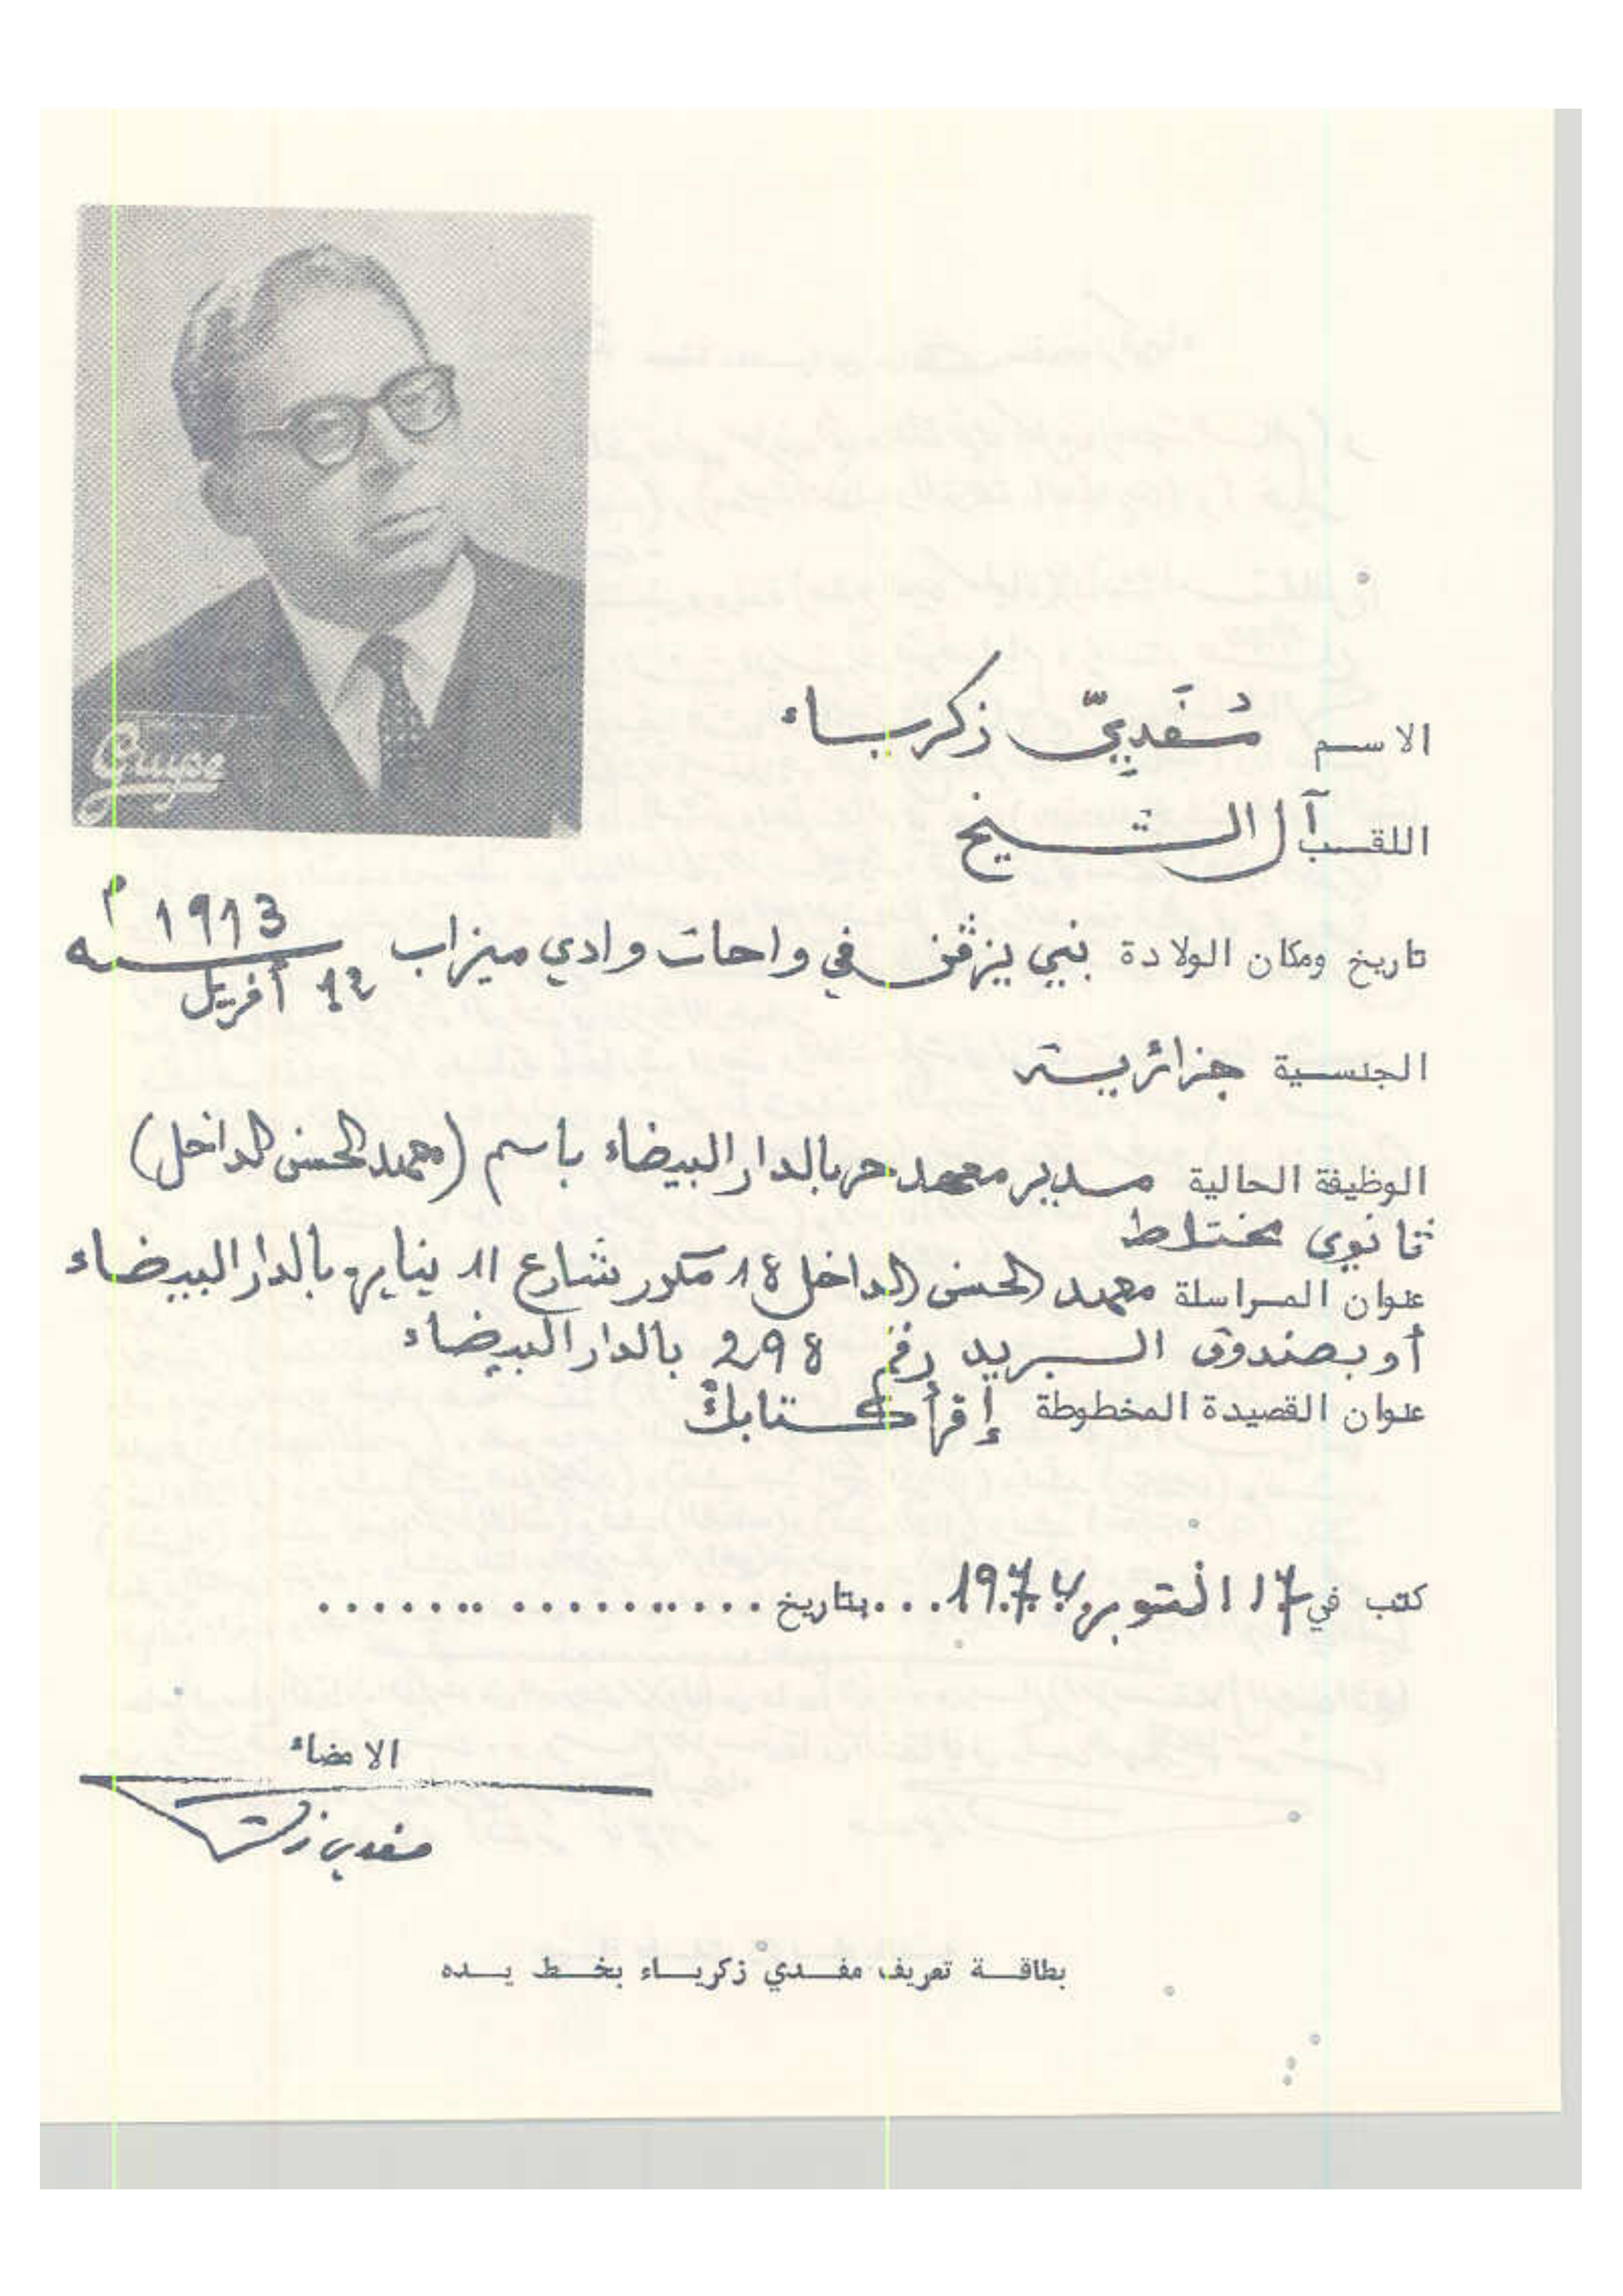 الاسم مُفَدِيّ زكرياء
اللقب آل الشيخ
تاريخ ومكان الولادة بني يزڤن في واحات وادي ميزاب 12 أفريل سنه 1913 م
الجنسية جزائرية
الوظيفة الحالية مدير معهد حر بالدار البيضاء باسم (محمد الحسن الداخل)
ثانوي مختلط
عنوان المراسلة محمد الحسن الداخل 18 مكرر شارع 11 يناير بالدار البيضاء
أو بصندوق البريد رقم 298 بالدار البيضاء
عنوان القصيدة المخطوطة إقرأ كتابك
كتب في 17 اكتوبر 1974 ... بتاريخ ...................
الامضاء
مفدي زكرياء
بطاقة تعريف مفدي زكرياء بخط يده